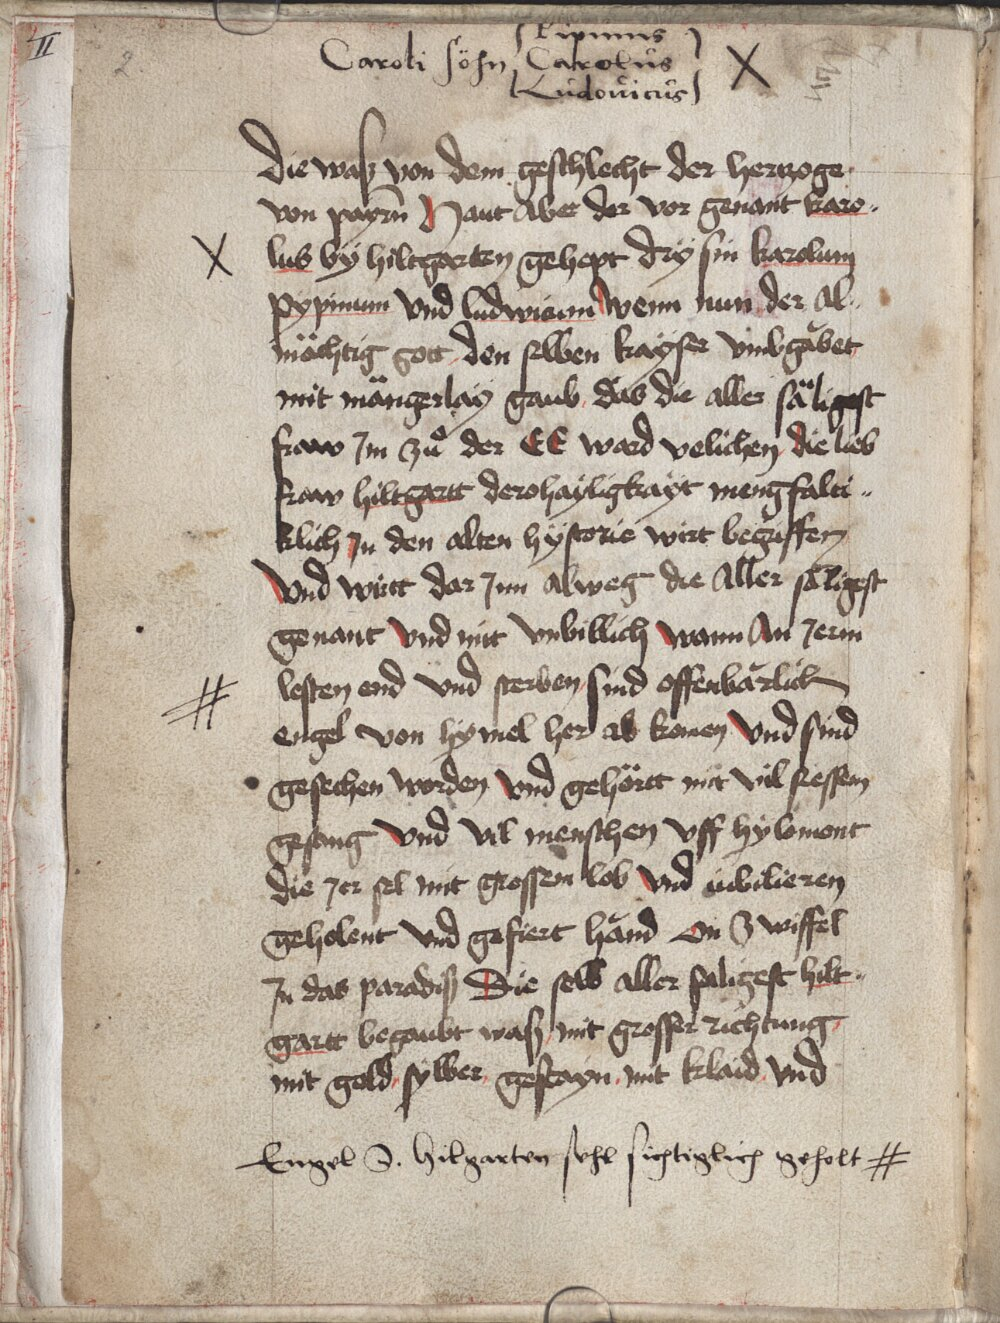 II
2
Pipinus
Caroli söhn Carolus X
Ludouicus
Die waß von dem geschlecht der hertzoge
von payrn Haut Aber der vor genant karo-
X lus by hiltgarten gehept dry sin karolum
pypinum vnd ludwicum wenn nun der Al-
mächtig gott den selben kayser vmbgäbet
mit mängerlay gaub das die aller säligest
fraw Im zů der EE ward verlichen die lieb
fraw hiltgartt dero hayligkayt mengfalti-
klich In den alten hystorie wirt begriffen
Vnd wirtt dar Inn alweg die Aller säligest
genant Vnd nit vnbillich wann An Jerm
# lesten end vnd sterben sind offenbärlich
engel von hymel her ab komen Vnd sind
gesechen worden Vnd gehörtt mit vil siessem
gesang Vnd vil menschen vff hylomont
die Jer sel mit grossem lob Vnd iubilieren
geholent vnd gefiert händ on zwiffel
In das paradiß Die selb aller saligest hilt-
gartt begaubt waß mit grosser richtung
mit gold sylber gestayn mit klaid vnd
Engel S. Hilgarten sehl sichtiglich geholt #